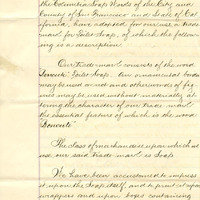 the Columbia Soap Works of the City and
County of San Francisco and State of Cal
ifornia, have adopted for our use a trade
mark for Toilet Soap, of which the follow
ing is a description
Our trade mark consists of the word
Toilet Soap. Any ornamental border
may be used or not and other words of fig
ures may be used without materially al
tering the character of our trade mark
the essential feature of which is the word
The class of merchandise upon which we
use our said trade mark is Soap
We have been accustomed to impress
it upon the Soap itself, and to print it upon
wrappers and upon boxes containing